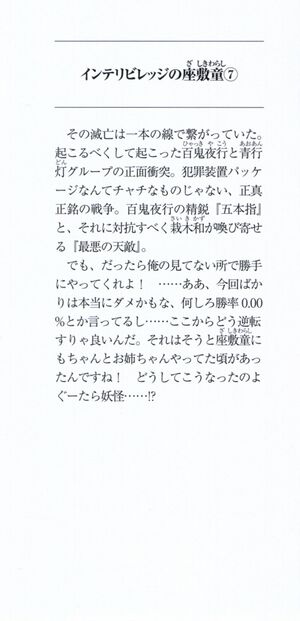 インテリビレッジの座敷童⑦
その滅亡は一本の線で繋がっていた。
起こるべくして起こった百鬼夜行と青行
灯グループの正面衝突。犯罪装置パッケ
ージなんてチャチなものじゃない、正真
正銘の戦争。百鬼夜行の精鋭『五本指』
と、それに対抗すべく栽木和が喚び寄せ
る『最悪の天敵』。
でも、だったら俺の見てない所で勝手
にやってくれよ！　……ああ、今回ばか
りは本当にダメかもな、何しろ勝率0.00
%とか言ってるし……ここからどう逆転
すりゃ良いんだ。それはそうと座敷童に
もちゃんとお姉ちゃんやってた頃があっ
たんですね！　どうしてこうなったのよ
ぐーたら妖怪……!?